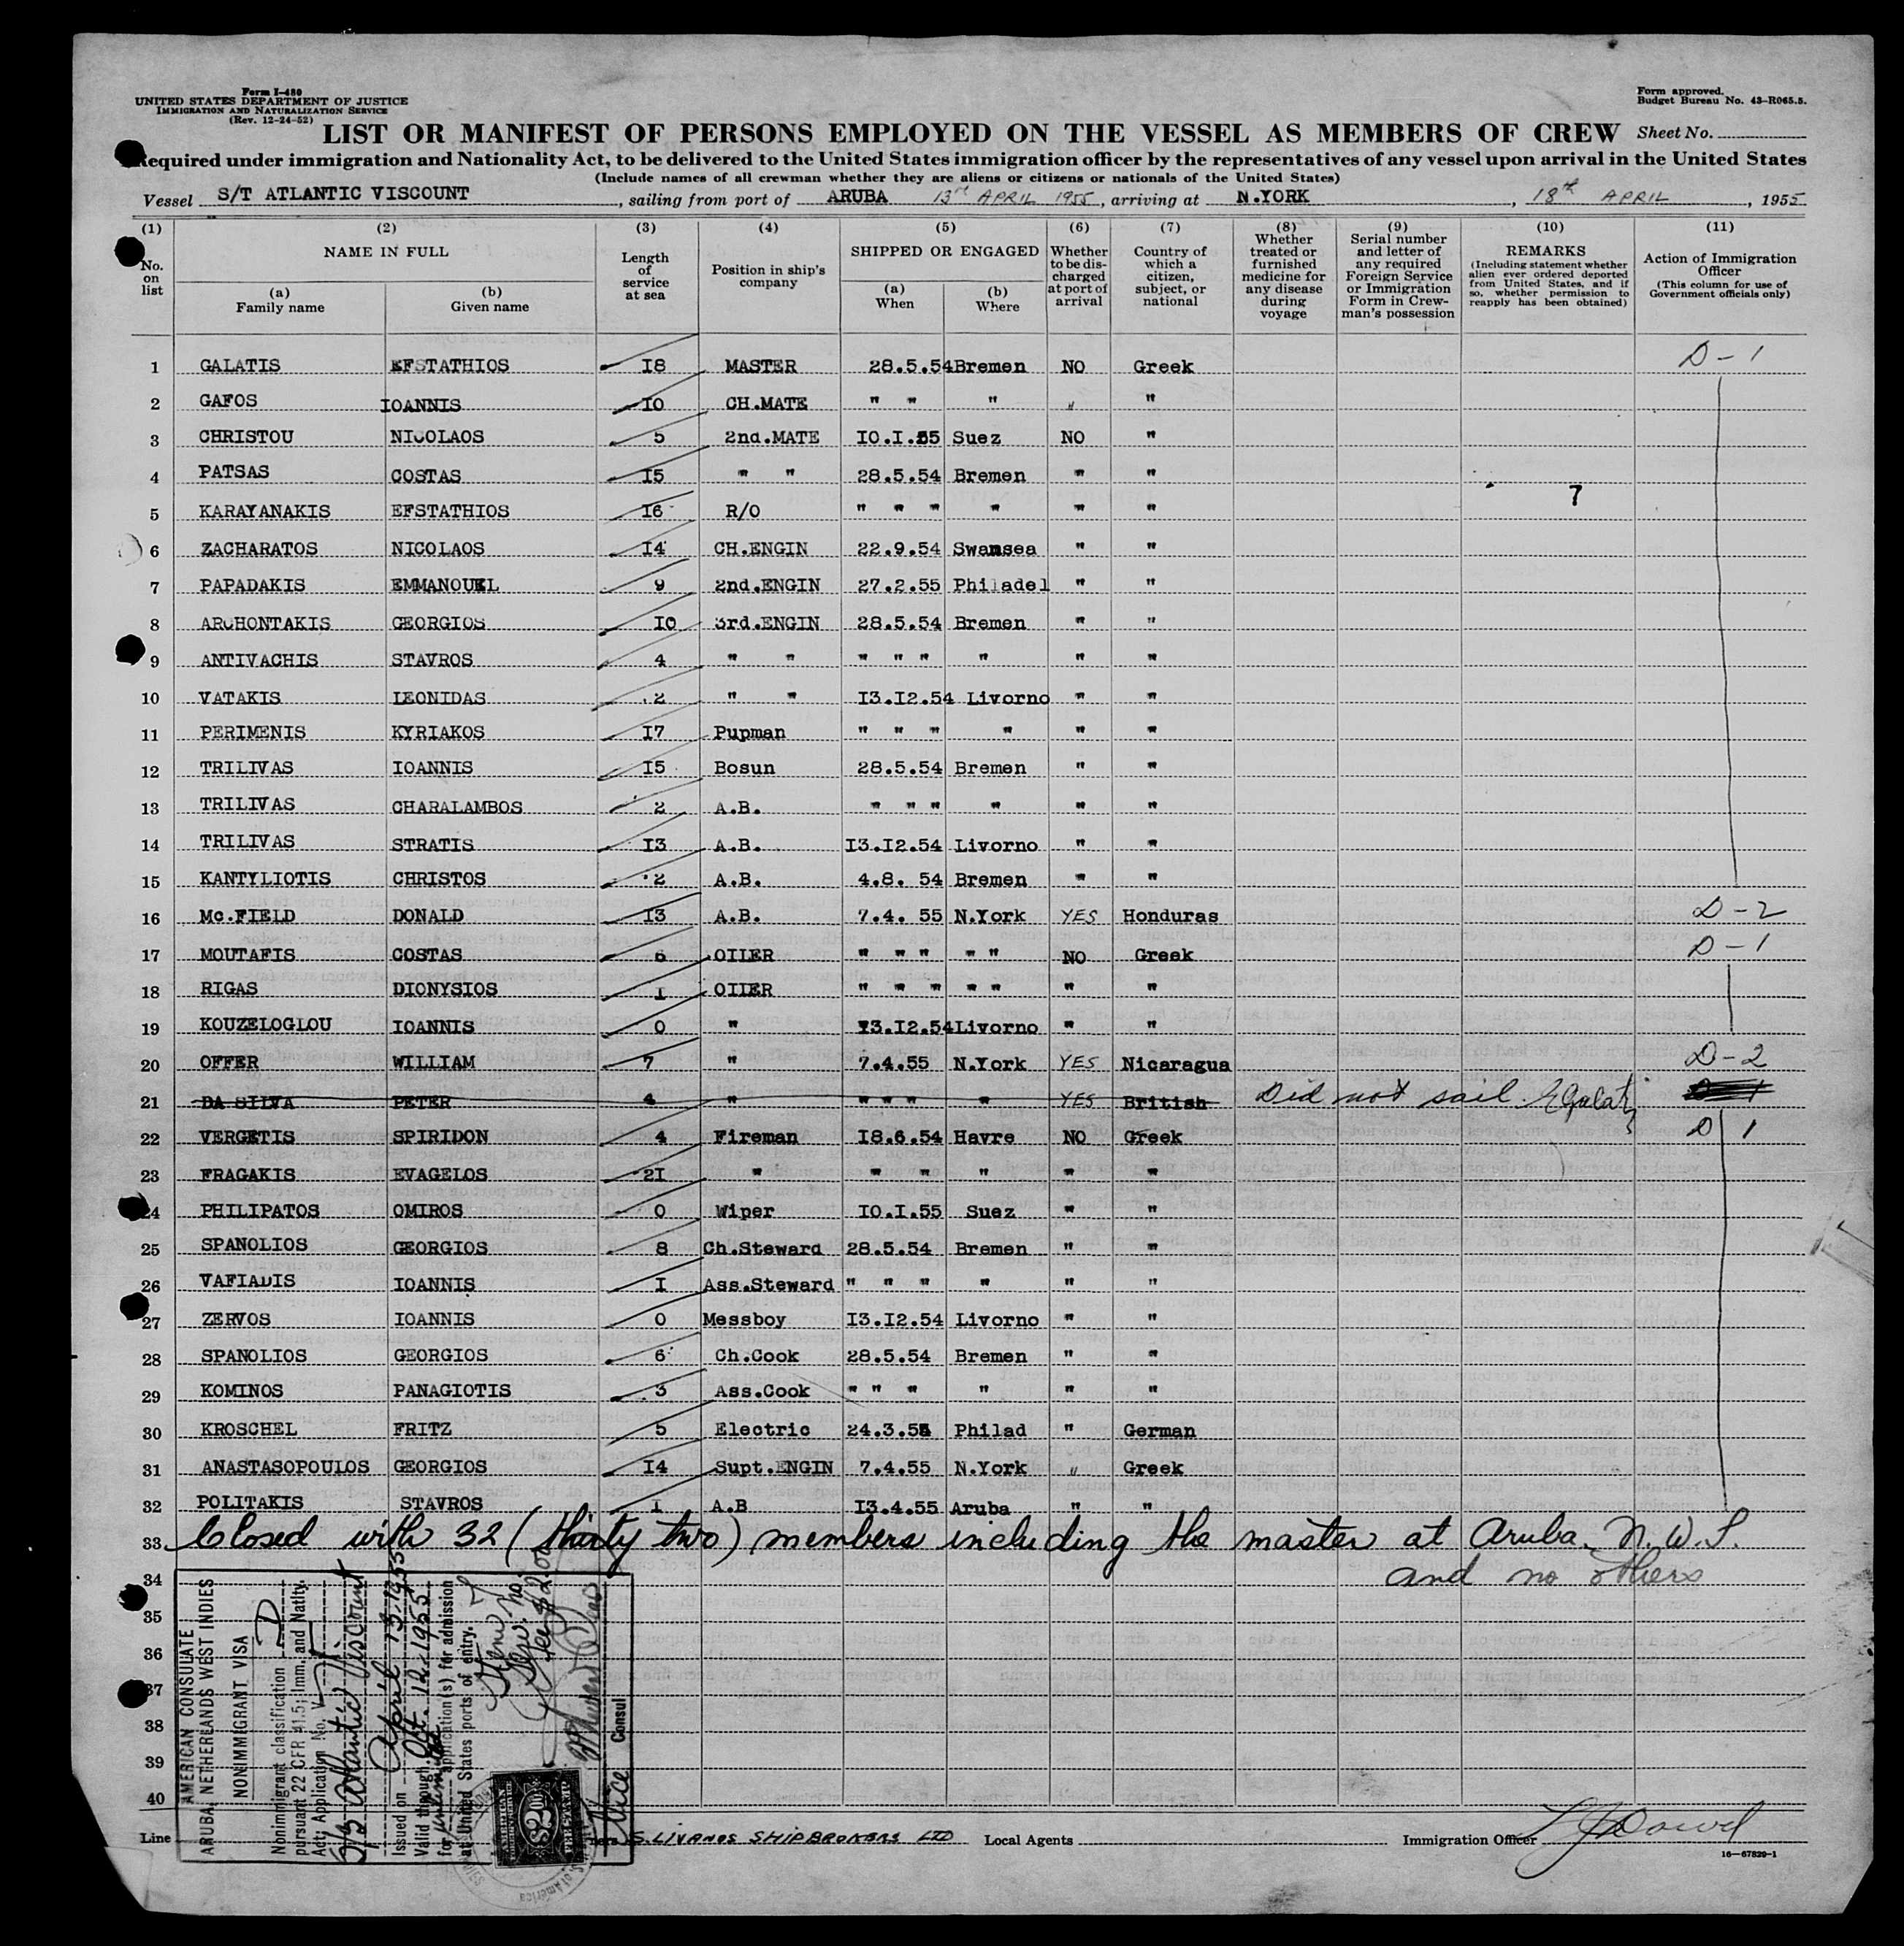 Form I-480
UNITED STATES DEPARTMENT OF JUSTICE
IMMIGRATION AND NATURALIZATION SERVICE
(Rev. 12-24-52)
Form approved.
Budget Bureau No. 43-R065.5.
LIST OR MANIFEST OF PERSONS EMPLOYED ON THE VESSEL AS MEMBERS OF CREW Sheet No.
Required under immigration and Nationality Act, to be delivered to the United States immigration officer by the representatives of any vessel upon arrival in the United States
(Include names of all crewman whether they are aliens or citizens or nationals of the United States)
Vessel S/T ATLANTIC VISCOUNT, sailing from port of ARUBA 13rd APRIL 1955, arriving at N.YORK, 18th APRIL, 1955
(1) (2) (3) (4) (5) (6) (7) (8) (9) (10) (11)
No. on list
NAME IN FULL
(a) Family name
(b) Given name
Length of service at sea
Position in ship's company
SHIPPED OR ENGAGED
(a) When
(b) Where
Whether to be discharged at port of arrival
Country of which a citizen, subject, or national
Whether treated or furnished medicine for any disease during voyage
Serial number and letter of any required Foreign Service or Immigration Form in Crewman's possession
REMARKS
(Including statement whether alien ever ordered deported from United States, and if so, whether permission to reapply has been obtained)
Action of Immigration Officer
(This column for use of Government officials only)
1 GALATIS EFSTATHIOS 18 MASTER 28.5.54 Bremen NO Greek D-1
2 GAFOS IOANNIS IO CH.MATE " " " " "
3 CHRISTOU NICOLAOS 5 2nd.MATE IO.I.55 Suez NO "
4 PATSAS COSTAS I5 " " 28.5.54 Bremen " "
7
5 KARAYANAKIS EFSTATHIOS I6 R/O " " " " " "
6 ZACHARATOS NICOLAOS I4 CH.ENGIN 22.9.54 Swansea " "
7 PAPADAKIS EMMANOUEL 9 2nd.ENGIN 27.2.55 Philadel " "
8 ARCHONTAKIS GEORGIOS IO 3rd.ENGIN 28.5.54 Bremen " "
9 ANTIVACHIS STAVROS 4 " " " " " " " "
10 VATAKIS LEONIDAS 2 " " I3.I2.54 Livorno " "
11 PERIMENIS KYRIAKOS I7 Pupman " " " " " "
12 TRILIVAS IOANNIS I5 Bosun 28.5.54 Bremen " "
13 TRILIVAS CHARALAMBOS 2 A.B. " " " " " "
14 TRILIVAS STRATIS I3 A.B. I3.I2.54 Livorno " "
15 KANTYLIOTIS CHRISTOS 2 A.B. 4.8. 54 Bremen " "
16 Mc.FIELD DONALD I3 A.B. 7.4. 55 N.York YES Honduras D-2
17 MOUTAFIS COSTAS 6 OILER " " " " " NO Greek D-1
18 RIGAS DIONYSIOS I OILER " " " " " " "
19 KOUZELOGLOU IOANNIS O " I3.I2.54 Livorno " "
20 OFFER WILLIAM 7 " 7.4.55 N.York YES Nicaragua D-2
21 DA SILVA PETER 4 " " " " " YES British Did not sail EGalatis
22 VERGETIS SPIRIDON 4 Fireman I8.6.54 Havre NO Greek D 1
23 FRAGAKIS EVAGELOS 2I " " " " " "
24 PHILIPATOS OMIROS O Wiper IO.I.55 Suez " "
25 SPANOLIOS GEORGIOS 8 Ch.Steward 28.5.54 Bremen " "
26 VAFIADIS IOANNIS I Ass.Steward " " " " " "
27 ZERVOS IOANNIS O Messboy I3.I2.54 Livorno " "
28 SPANOLIOS GEORGIOS 6 Ch.Cook 28.5.54 Bremen " "
29 KOMINOS PANAGIOTIS 3 Ass.Cook " " " " " "
30 KROSCHEL FRITZ 5 Electric 24.3.55 Philad " German
31 ANASTASOPOULOS GEORGIOS I4 Supt.ENGIN 7.4.55 N.York " Greek
32 POLITAKIS STAVROS I A.B I3.4.55 Aruba " "
33 Closed with 32 (thirty two) members including the master at Aruba, N.W.I.
34 and no others
35
36
37
38
39
40
AMERICAN CONSULATE
ARUBA, NETHERLANDS WEST INDIES
NONIMMIGRANT VISA
Nonimmigrant classification D
pursuant 22 CFR 41.5; Imm. and Natlty.
Act; Application No. V-
S/S Atlantic Viscount
Issued on April 13, 1955
Valid through Oct. 12, 1955
for unlimited application(s) for admission
at United States ports of entry.
Serv. no.
Fee $2.00
Vice Consul
Line S. LIVANOS SHIPBROKERS LTD Local Agents Immigration Officer
16—67829-1